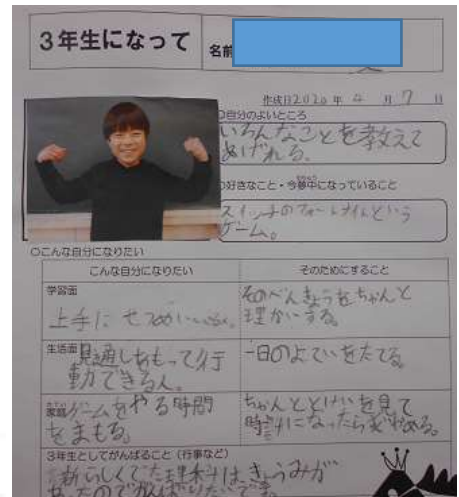 3年生になって
名前
作成日2020年 2月7日
○自分のよいところ
いろんなことを教えて
あげれる。
○好きなこと・今夢中になっていること
スイッチのフォートナイトという
ゲーム。
○こんな自分になりたい
こんな自分になりたい
そのためにすること
学習面
上手に
そのべんきょうをちゃんと
理かいする。
生活面
見通しをもって行
動できる人。
一日のよていをたてる。
家庭
ゲームをやる時間
をまもる。
ちゃんととけいを見て
時計になったら
3年生としてがんばること(行事など)
新らしくでた理科は、きょうみが
あったのでがんばりたいです。